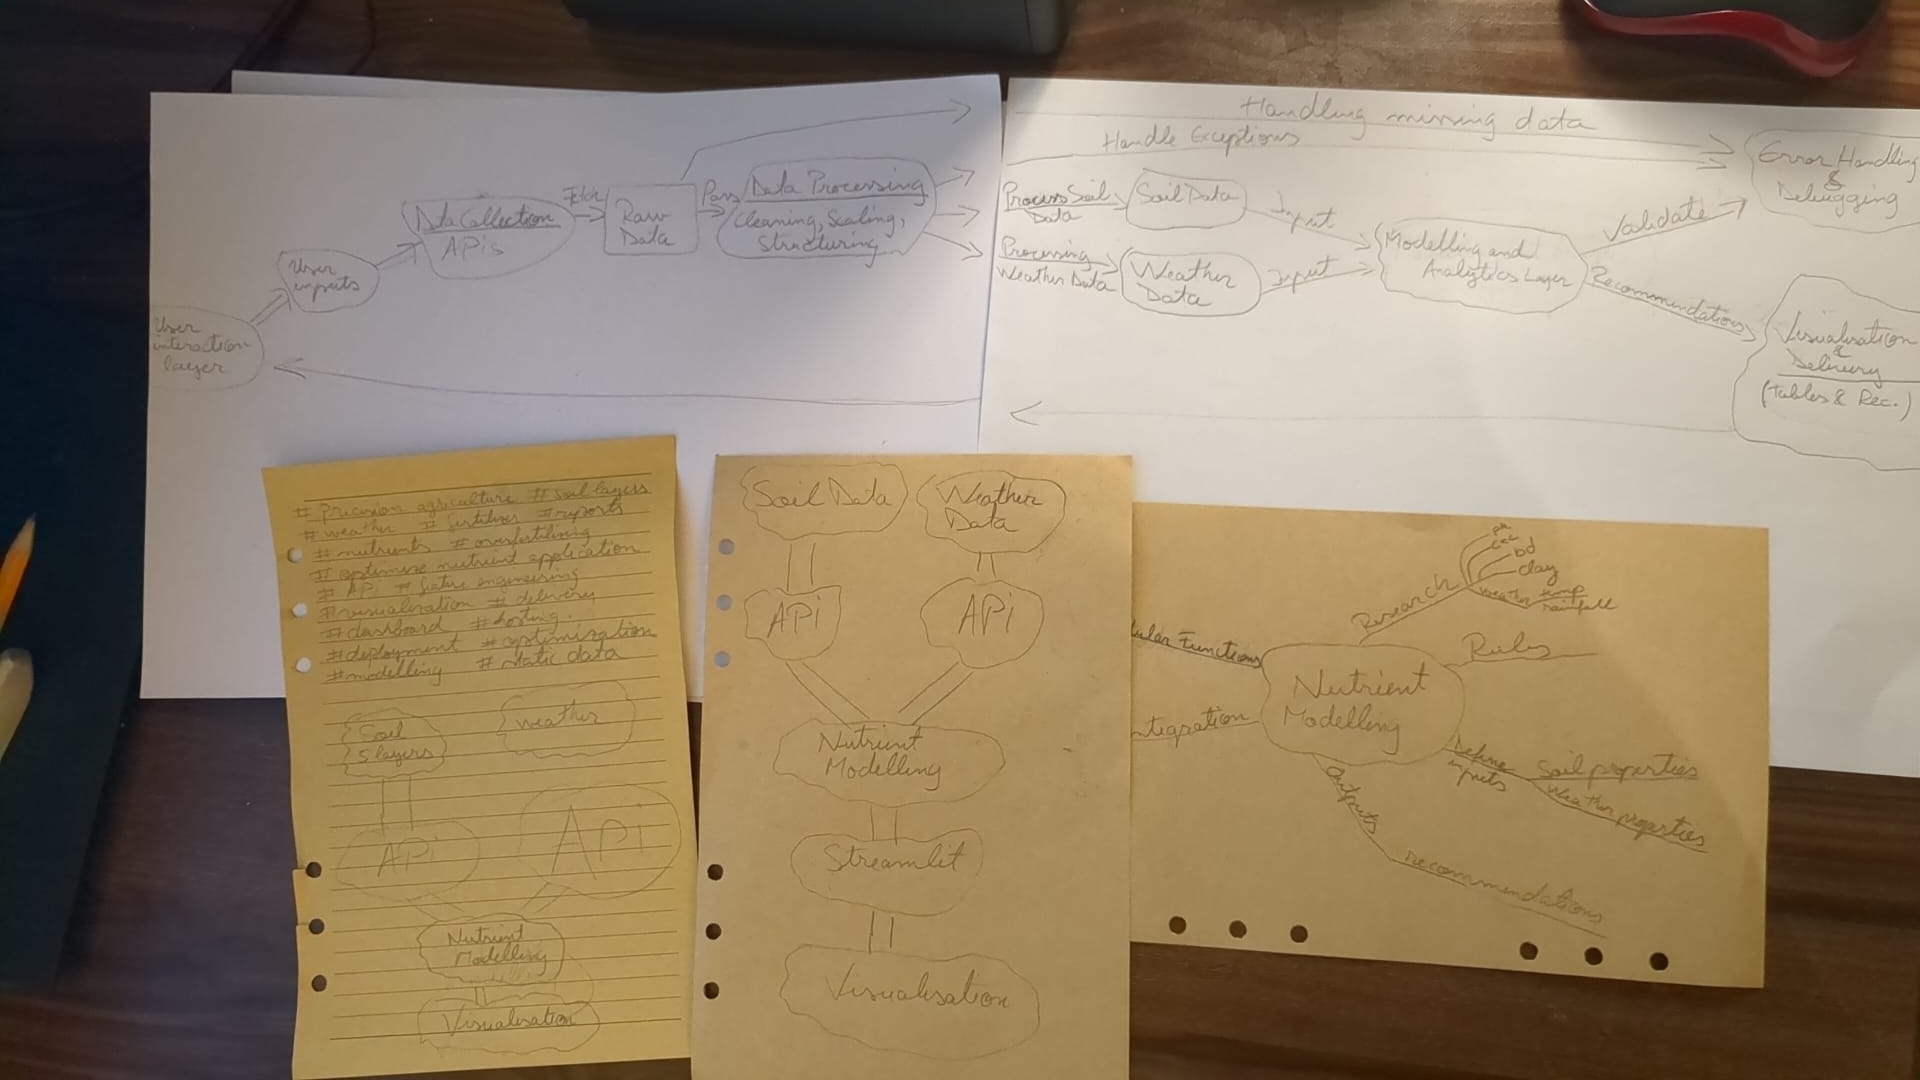 User
interaction
layer
User
inputs
Data Collection
APis
Fetch
Raw
Data
Pass
Data Processing
Cleaning, Scaling,
Structuring
Handling missing data
Handle Exceptions
Process Soil
Data
Soil Data
Input
Processing
Weather Data
Weather
Data
Input
Modelling and
Analytics Layer
Validate
Recommendations
Error Handling
&
Debugging
Visualisation
&
Delivery
(Tables & Rec.)
# precision agriculture # soil layers
# weather # fertilizer # reports
# nutrients # overfertilising
# optimize nutrient application
# APi # feature engineering
# visualisation # delivery
# dashboard # hosting
# deployment # optimisation
# modelling # static data
Soil
5 layers
weather
APi
APi
Nutrient
Modelling
Visualisation
Soil Data
Weather
Data
APi
APi
Nutrient
Modelling
Streamlit
Visualisation
Nutrient
Modelling
Research
ph
cec
bd
clay
weather temp
rainfall
Rules
Define
inputs
Soil properties
Weather properties
Outputs
recommendations
ular Functions
ntegration